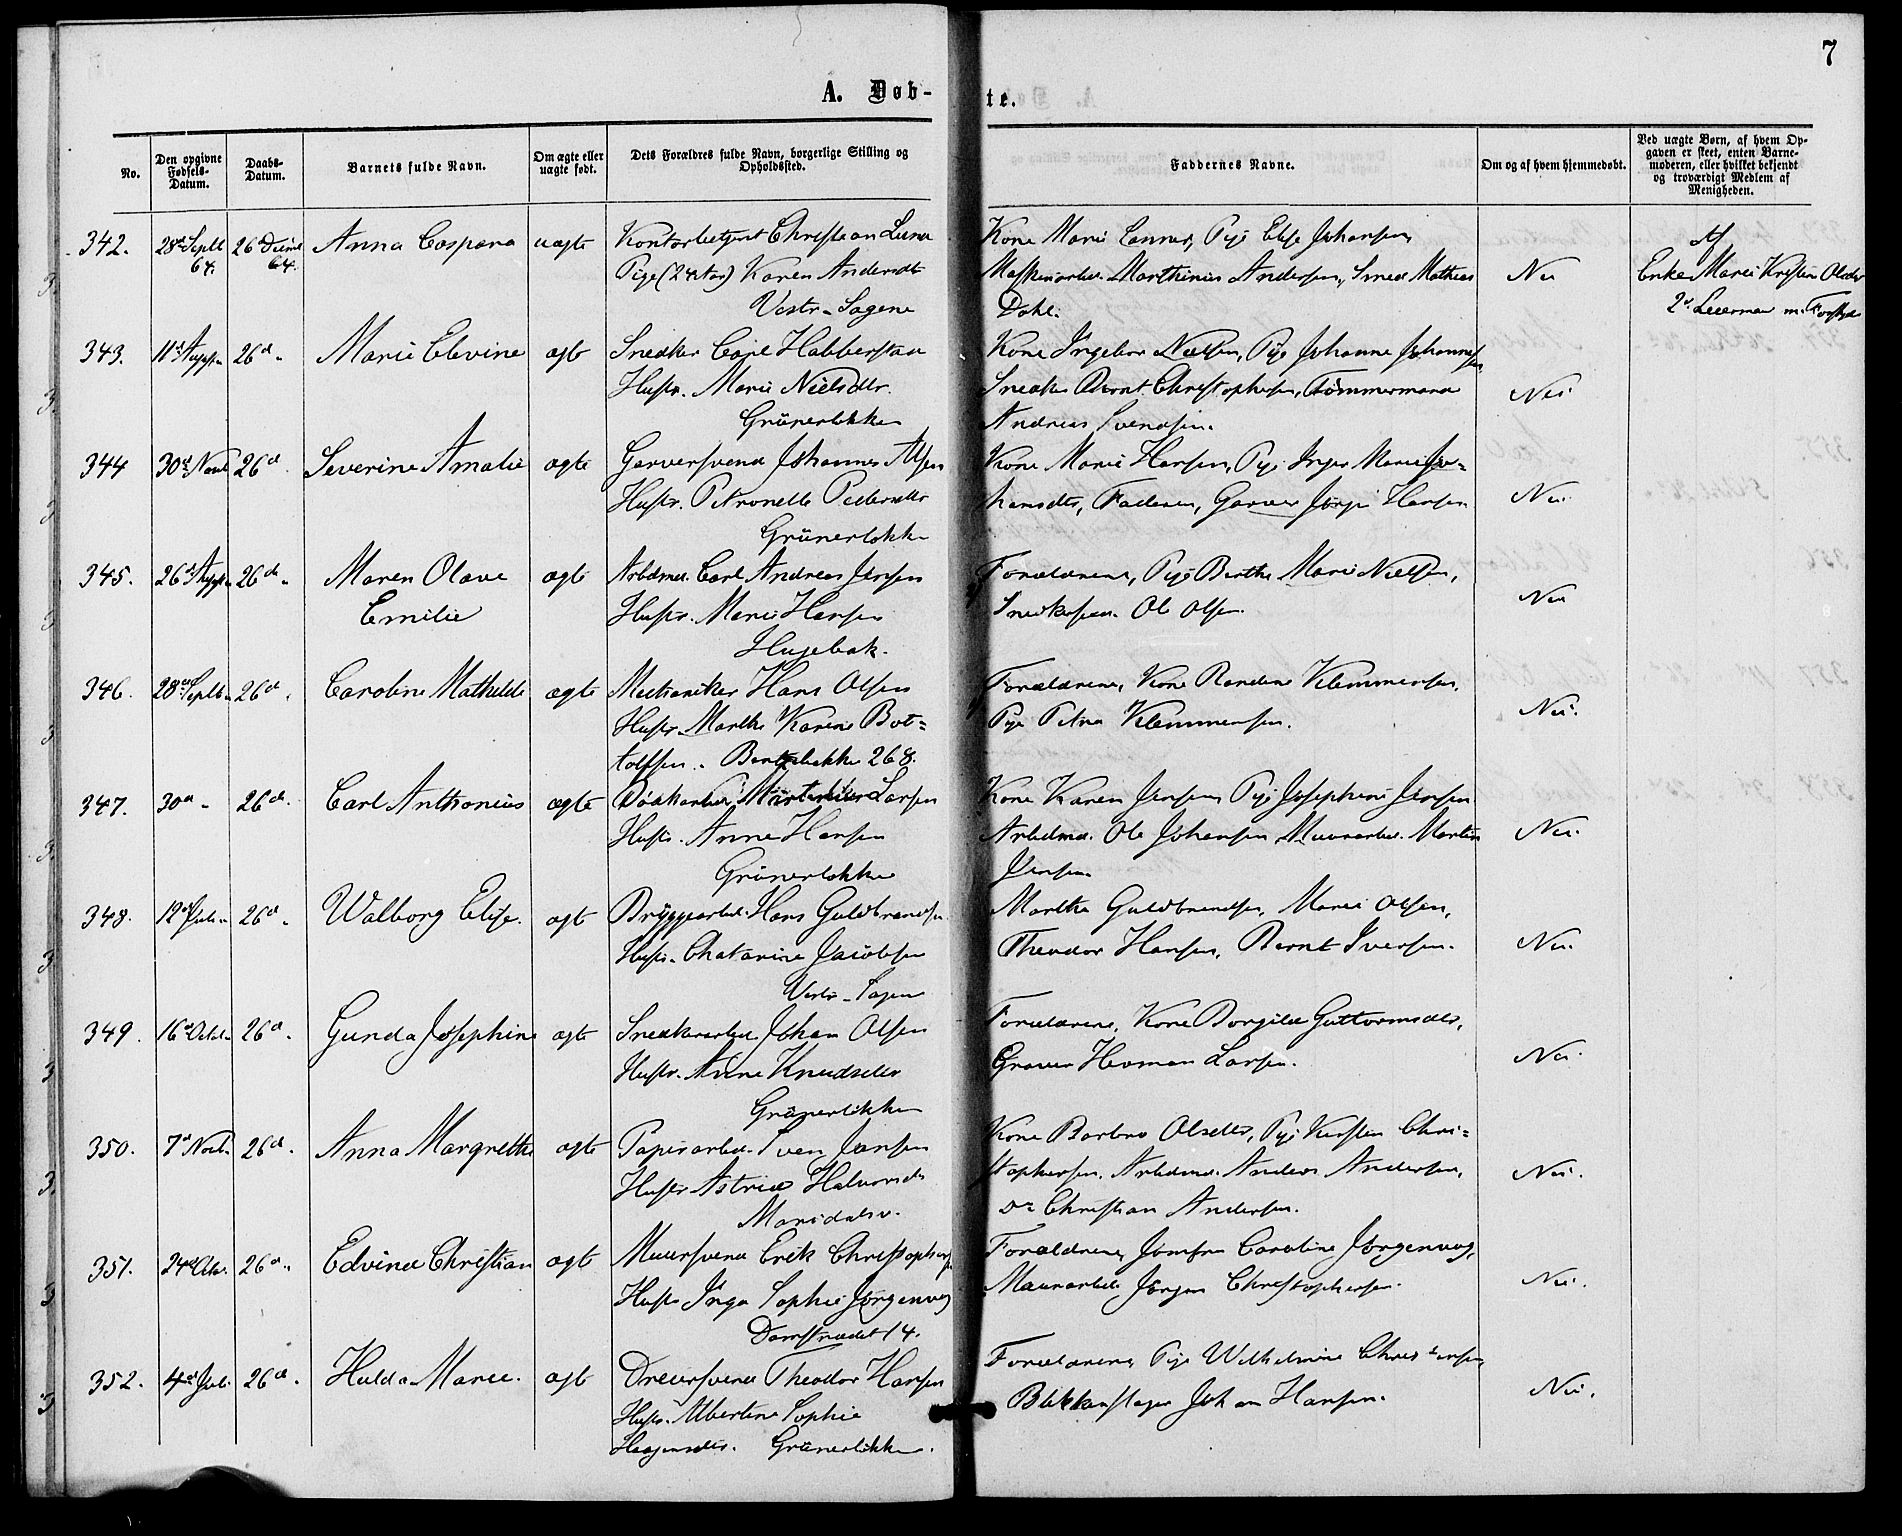 7
A. Døb-
te.
No.
Den opgivne Fødsels-Datum.
Daabs-Datum.
Barnets fulde Navn.
Om ægte eller uægte født.
Dets Forældres fulde Navn, borgerlige Stilling og Opholdssted.
Faddernes Navne.
Om og af hvem hjemmedøbt.
Ved uægte Børn, af hvem Opgaven er skeet, enten Barnemoderen, eller hvilket bekjendt og troværdigt Medlem af Menigheden.
342. 28de Septb 64. 26d Decemb 64. Anna Caspara uægte
Kontorbetjent Christian Lund
Pige (24 Aar) Karen Andersdtr
Vestr. Sagene
Kone Marie Conner, Pige Elise Johansen,
Maskinarbd. Marthinius Andersen, Smed Mathias
Dahl.
Nei
Af
Enke Marie Kristine Olsdtr
2d Leierm
343. 11d Aug. 26d. Marie Elevine ægte
Snedker Carl Habberstad
Hustr. Marie Nielsdtr.
Grünerløkken
Kone Ingebor Nielsen, Pige Johanne Johannesen
Snedker Bernt Christophersen, Tømmermand
Andreas Svendsen.
Nei
344 30d Novb 26d. Severine Amalie ægte
Garversvend Johannes Alsen
Hustr. Petronelle Pedersdtr
Grünerløkken
Kone Marie Hansen, Pige Inger Marie Jo-
hansdtr, Faderen, Garver Jørgen Hansen
Nei.
345. 26d Aug. 26d. Maren Olave
Emilie
ægte
Arbdmd. Carl Andreas Jensen
Hustr. Marie Hansen
Forældrene, Pige Berthe Marie Nielsen,
Snedkersvd. Ole Olsen.
Nei
346. 28de Septb. 26d. Caroline Mathilde ægte
Mechaniker Hans Olsen
Hustr. Marthe Karine Bot-
tolfsen. 268.
Forældrene, Kone Randine Klemmensen,
Pige Petra Klemmensen.
Nei.
347. 30d. 26d. Carl Anthonius ægte
Bødkerarbd. Martinius Larsen
Hustr. Anne Hansen
Grünerløkken
Kone Karen Jensen, Pige Josephine Jensen
Arbdmd. Ole Johansen, Muurarbd. Martin
Jensen
Nei.
348. 12d Juli. 26d. Walborg Elise. ægte
Bryggearbd. Hans Guldbrandsen
Hustr. Chatarine Jacobsen
Vestr. Sagen
Marthe Guldbrandsen, Marie Olsen,
Theodor Hansen, Bernt Iversen.
Nei.
349. 16d Octb. 26d. Gunda Josephine ægte
Snedkerarbd. Johan Olsen
Hustr. Anne Knudsdtr
Grünerløkken
Forældrene, Kone Borgild Guttormsdtr,
Graver Herman Larsen.
Nei.
350. 7d Novb. 26d. Anna Margrethe ægte
Papirarbd. Sven Jansen
Hustr. Astrid Halvorsdtr
Maridalsv.
Kone Barbro Olsdtr, Pige Kirsten Chri-
stophersen, Arbdmd. Anders Andersen,
do Christian Andersen.
Nei.
351. 24d Octb. 26d. Edvind Christian ægte
Muursvend Erik Christophersen
Hustr. Inga Sophie Jørgenvog
Damstrædet 14.
Forældrene, Jomfru Caroline Jørgenvog,
Muurarbd. Jørgen Christophersen.
Nei.
352. 4de Juli. 26d. Hulda Marie. ægte
Dreiersvend Theodor Hansen
Hustr. Albertine Sophie
Haagensdtr. Grünerløkken.
Forældrene, Pige Wilhelmine Christensen,
Blikkenslager Johan Hansen.
Nei.